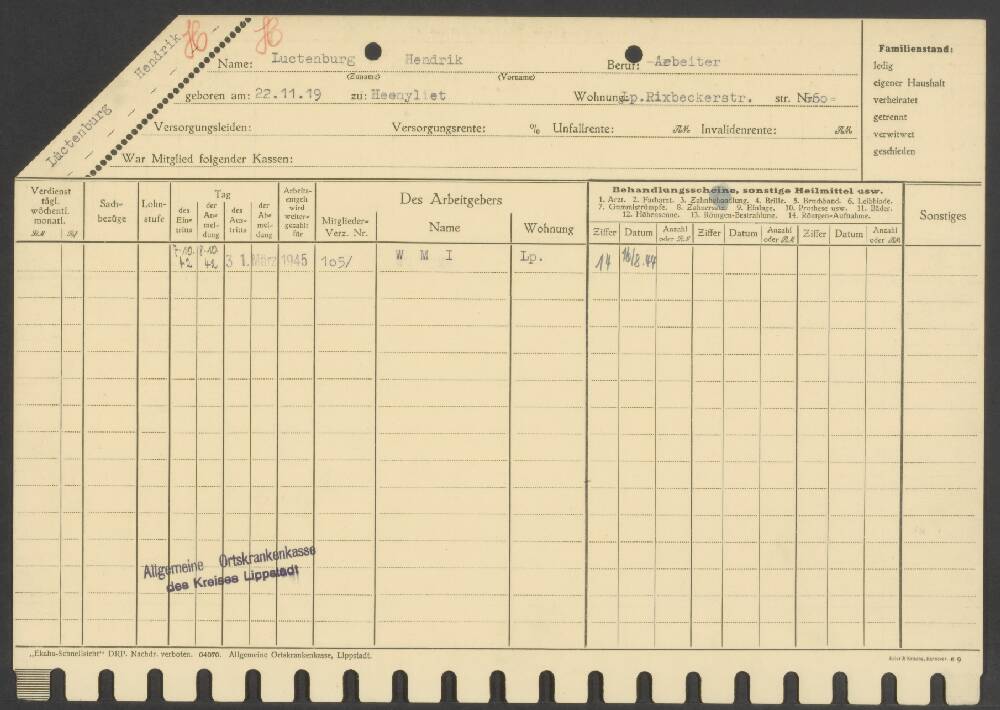 Luctenburg Hendrik
H H
Name: Luctenburg Hendrik Beruf: Arbeiter
(Zuname) (Vorname)
geboren am: 22.11.19 zu: Heenvliet Wohnung: Lp.Rixbeckerstr. str. Nr. 60=
Versorgungsleiden: Versorgungsrente: % Unfallrente: RM Invalidenrente: RM
War Mitglied folgender Kassen:
Familienstand:
ledig
eigener Haushalt
verheiratet
getrennt
verwitwet
geschieden
Verdienst tägl. wöchentl. monatl. RM Rpf
Sachbezüge
Lohnstufe
Tag
des Eintritts
der Anmeldung
des Austritts
der Abmeldung
Arbeitsentgelt wird weitergezahlt für
Mitglieder-Verz. Nr.
Des Arbeitgebers
Name Wohnung
Behandlungsscheine, sonstige Heilmittel usw.
1. Arzt. 2. Facharzt. 3. Zahnbehandlung. 4. Brille. 5. Bruchband. 6. Leibbinde.
7. Gummistrümpfe. 8. Zahnersatz. 9. Einlage. 10. Prothese usw. 11. Bäder.
12. Höhensonne. 13. Röntgen-Bestrahlung. 14. Röntgen-Aufnahme.
Ziffer Datum Anzahl oder RM Ziffer Datum Anzahl oder RM Ziffer Datum Anzahl oder RM
Sonstiges
7.10. 42 8.10. 42 31. März 1945 105/ W M I Lp. 14 16/8.44
Allgemeine Ortskrankenkasse
des Kreises Lippstadt
„Ekaha-Schnellsicht“ DRP. Nachdr. verboten. 04070. Allgemeine Ortskrankenkasse, Lippstadt.